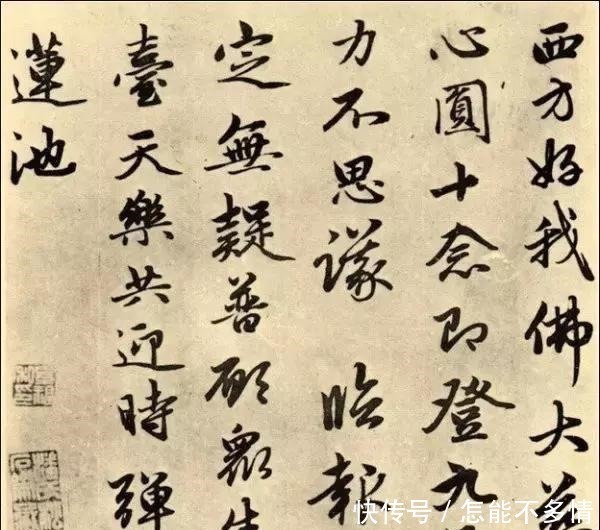 西方好我佛大
心圓十念即登九
力不思議 臨報
定無疑普願眾生
臺天樂共迎時彈
蓮池
快传号 / 怎能不多情